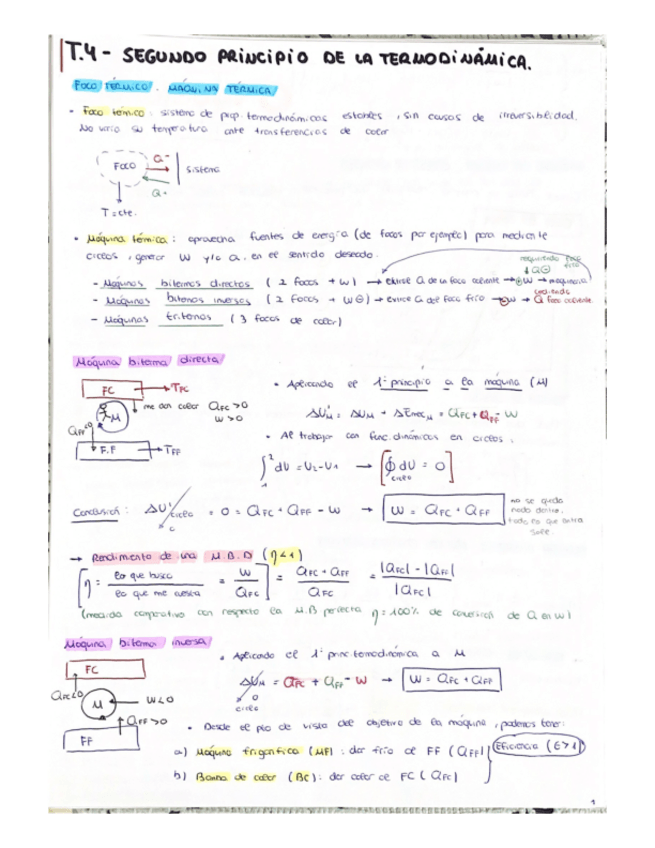 T.4 - SEGUNDO PRINCIPIO DE LA TERMODINÁMICA.
FOCO TÉRMICO. MÁQUINA TÉRMICA
• Foco térmico: sistema de prop. termodinámicas estables, sin causas de irreversibilidad.
No varia su temperatura ante transferencias de calor
FOCO Q- sistema
Q+
T = cte.
• Máquina térmica: aprovecha fuentes de energía (de focos por ejemplo) para mediante
ciclos, generar W y/o Q, en el sentido deseado.
- Máquinas bitermas directas (2 focos + W) → extrae Q de un foco caliente → ⊕W → maquinaria
- Máquinas bitermas inversas (2 focos + W⊖) → extrae Q del foco frío → ⊖W → Q foco caliente.
- Máquinas tritermas (3 focos de calor)
Máquina biterma directa
FC → TFC
M me dan calor QFC > 0
W > 0
QFF<0
F.F → TFF
• Aplicando el 1º principio a la máquina (M)
= QFC + QFF - W
• Al trabajar con func. dinámicas en ciclos:
∫₁² dU = U2 - U1 → [∮ dU = 0]
ciclo
Conclusión: ΔU ciclo = 0 = QFC + QFF - W → W = QFC + QFF
0
no se queda
nada dentro,
todo lo que entra
sale.
→ Rendimiento de una M.B.D (η<1)
[η = lo que busco / lo que me cuesta = W / QFC] = QFC + QFF / QFC = |QFC| - |QFF| / |QFC|
(medida comparativa con respecto la M.B perfecta η = 100% de conversión de Q en W)
Máquina biterma inversa
FC
QFC<0
M W<0
QFF>0
FF
• Aplicando el 1º princ. termodinámica a M
ΔUM = QFC + QFF - W → W = QFC + QFF
0
ciclo
• Desde el pto de vista del objetivo de la máquina, podemos tener:
a) Máquina frigorífica (MF): dar frío al FF (QFF)
Eficiencia (ε>1)
b) Bomba de calor (BC): dar calor al FC (QFC)
1